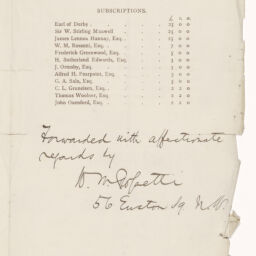 SUBSCRIPTIONS.
£ s. d.
Earl of Derby 25 0 0
Sir W. Stirling Maxwell 25 0 0
James Lennox Hannay, Esq. 25 0 0
W. M. Rossetti, Esq. 5 0 0
Frederick Greenwood, Esq. 5 0 0
H. Sutherland Edwards, Esq. 5 0 0
J. Ormsby, Esq. 5 0 0
Alfred H. Pearpoint, Esq. 3 0 0
G. A. Sala, Esq. 5 0 0
C. L. Gruneisen, Esq. 2 2 0
Thomas Woolner, Esq. 2 2 0
John Oxenford, Esq. 2 2 0
Forwarded with affectionate
regards by
W. M. Rossetti
56 Euston Sq N.W.